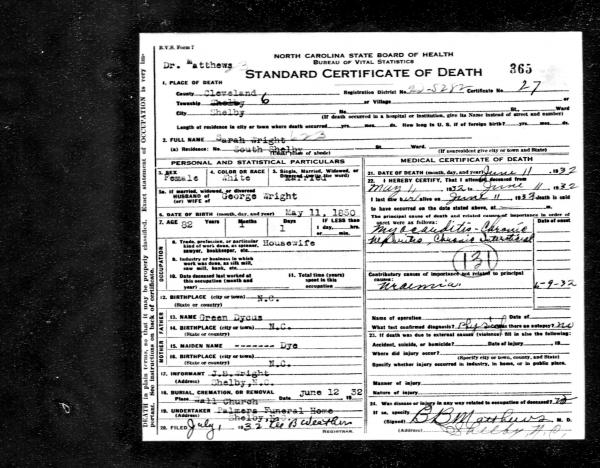 B.V.S. Form 7
Dr. Matthews
NORTH CAROLINA STATE BOARD OF HEALTH
BUREAU OF VITAL STATISTICS
STANDARD CERTIFICATE OF DEATH
365
1. PLACE OF DEATH
County Cleveland Registration District No. Certificate No. 27
Township Shelby 6 or Village or
City Shelby No. St. Ward
(If death occurred in a hospital or institution, give its Name instead of street and number)
Length of residence in city or town where death occurred yrs. mos. ds. How long in U. S. if of foreign birth? yrs. mos. ds.
2. FULL NAME Sarah Wright
(a) Residence: No. South Shelby St. Ward
(Usual place of abode) (If nonresident give city or town and State)
PERSONAL AND STATISTICAL PARTICULARS
3. SEX Female
4. COLOR OR RACE White
5. Single, Married, Widowed, or Divorced (write the word) Married
5a. If married, widowed, or divorced
HUSBAND of
(or) WIFE of George Wright
6. DATE OF BIRTH (month, day, and year) May 11, 1850
7. AGE Years 82 Months 1 Days 1 If LESS than 1 day, hrs. or min.
OCCUPATION
8. Trade, profession, or particular kind of work done, as spinner, sawyer, bookkeeper, etc. Housewife
9. Industry or business in which work was done, as silk mill, saw mill, bank, etc.
10. Date deceased last worked at this occupation (month and year)
11. Total time (years) spent in this occupation
12. BIRTHPLACE (city or town) N.C.
(State or country)
FATHER
13. NAME Green Dycus
14. BIRTHPLACE (city or town) N.C.
(State or country)
MOTHER
15. MAIDEN NAME ------- Dye
16. BIRTHPLACE (city or town) N.C.
(State or country)
17. INFORMANT J.B. Wright
(Address) Shelby, N.C.
18. BURIAL, CREMATION, OR REMOVAL
Place Church Date June 12 32
19. UNDERTAKER Palmers Funeral Home
(Address) Shelby,
20. FILED July 1, 1932 Lee B Weathers
REGISTRAR.
MEDICAL CERTIFICATE OF DEATH
21. DATE OF DEATH (month, day, and year) June 11, 1932
22. I HEREBY CERTIFY, That I attended deceased from
May 1, 1932 to June 11, 1932
I last saw her alive on June 11, 1932, death is said
to have occurred on the date stated above, at m.
The principal cause of death and related causes of importance in order of onset were as follows:
Date of onset
Myocarditis - Chronic
Nephritis, Chronic Interstitial
131
Contributory causes of importance not related to principal cause:
Uraemia 6-9-32
Name of operation Date of
What test confirmed diagnosis? Physical Was there an autopsy? no
23. If death was due to external causes (violence) fill in also the following:
Accident, suicide, or homicide? Date of injury 19
Where did injury occur?
(Specify city or town, county, and State)
Specify whether injury occurred in industry, in home, or in public place.
Manner of injury
Nature of injury
24. Was disease or injury in any way related to occupation of deceased? no
If so, specify
(Signed) B B Matthews M. D.
(Address) Shelby N.C.